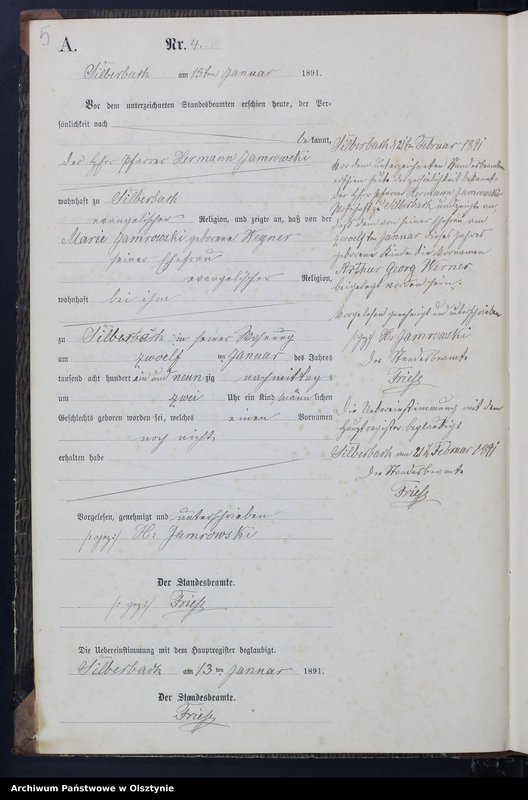 5
A.
Nr. 4.
Silberbach am 13ten Januar 1891.
Vor dem unterzeichneten Standesbeamten erschien heute, der Per-
sönlichkeit nach
bekannt,
der Pfarrer Hermann Jamrowski
wohnhaft zu Silberbach
evangelischer Religion, und zeigte an, daß von der
Marie Jamrowski geborene Wegner
seiner Ehefrau
evangelischer Religion,
wohnhaft bei ihm
zu Silberbach in seiner Wohnung
am zwoelf ten Januar des Jahres
tausend acht hundert ein und neunzig nachmittags
um zwei Uhr ein Kind männlichen
Geschlechts geboren worden sei, welches einen Vornamen
noch nicht
erhalten habe
Vorgelesen, genehmigt und unterschrieben
H. Jamrowski
Der Standesbeamte.
Friese
Die Uebereinstimmung mit dem Hauptregister beglaubigt.
Silberbach am 13ten Januar 1891.
Der Standesbeamte.
Friese
Silberbach 21ten Februar 1891
Vor dem unterzeichneten Standesbeamten
erschien heute der Persönlichkeit bekannt,
der Pfarrer Hermann Jamrowski
wohnhaft zu Silberbach, und zeigte an
daß dem von seiner Ehefrau am
zwoelften Januar dieses Jahres
geborene Kinde die Vornamen
Arthur Georg Werner
beigelegt worden seien.
Vorgelesen genehmigt und unterschrieben
H. Jamrowski
Der Standesbeamte
Friese
Die Uebereinstimmung mit dem
Hauptregister beglaubigt
Silberbach am 21ten Februar 1891
Der Standesbeamte
Friese
Archiwum Państwowe w Olsztynie